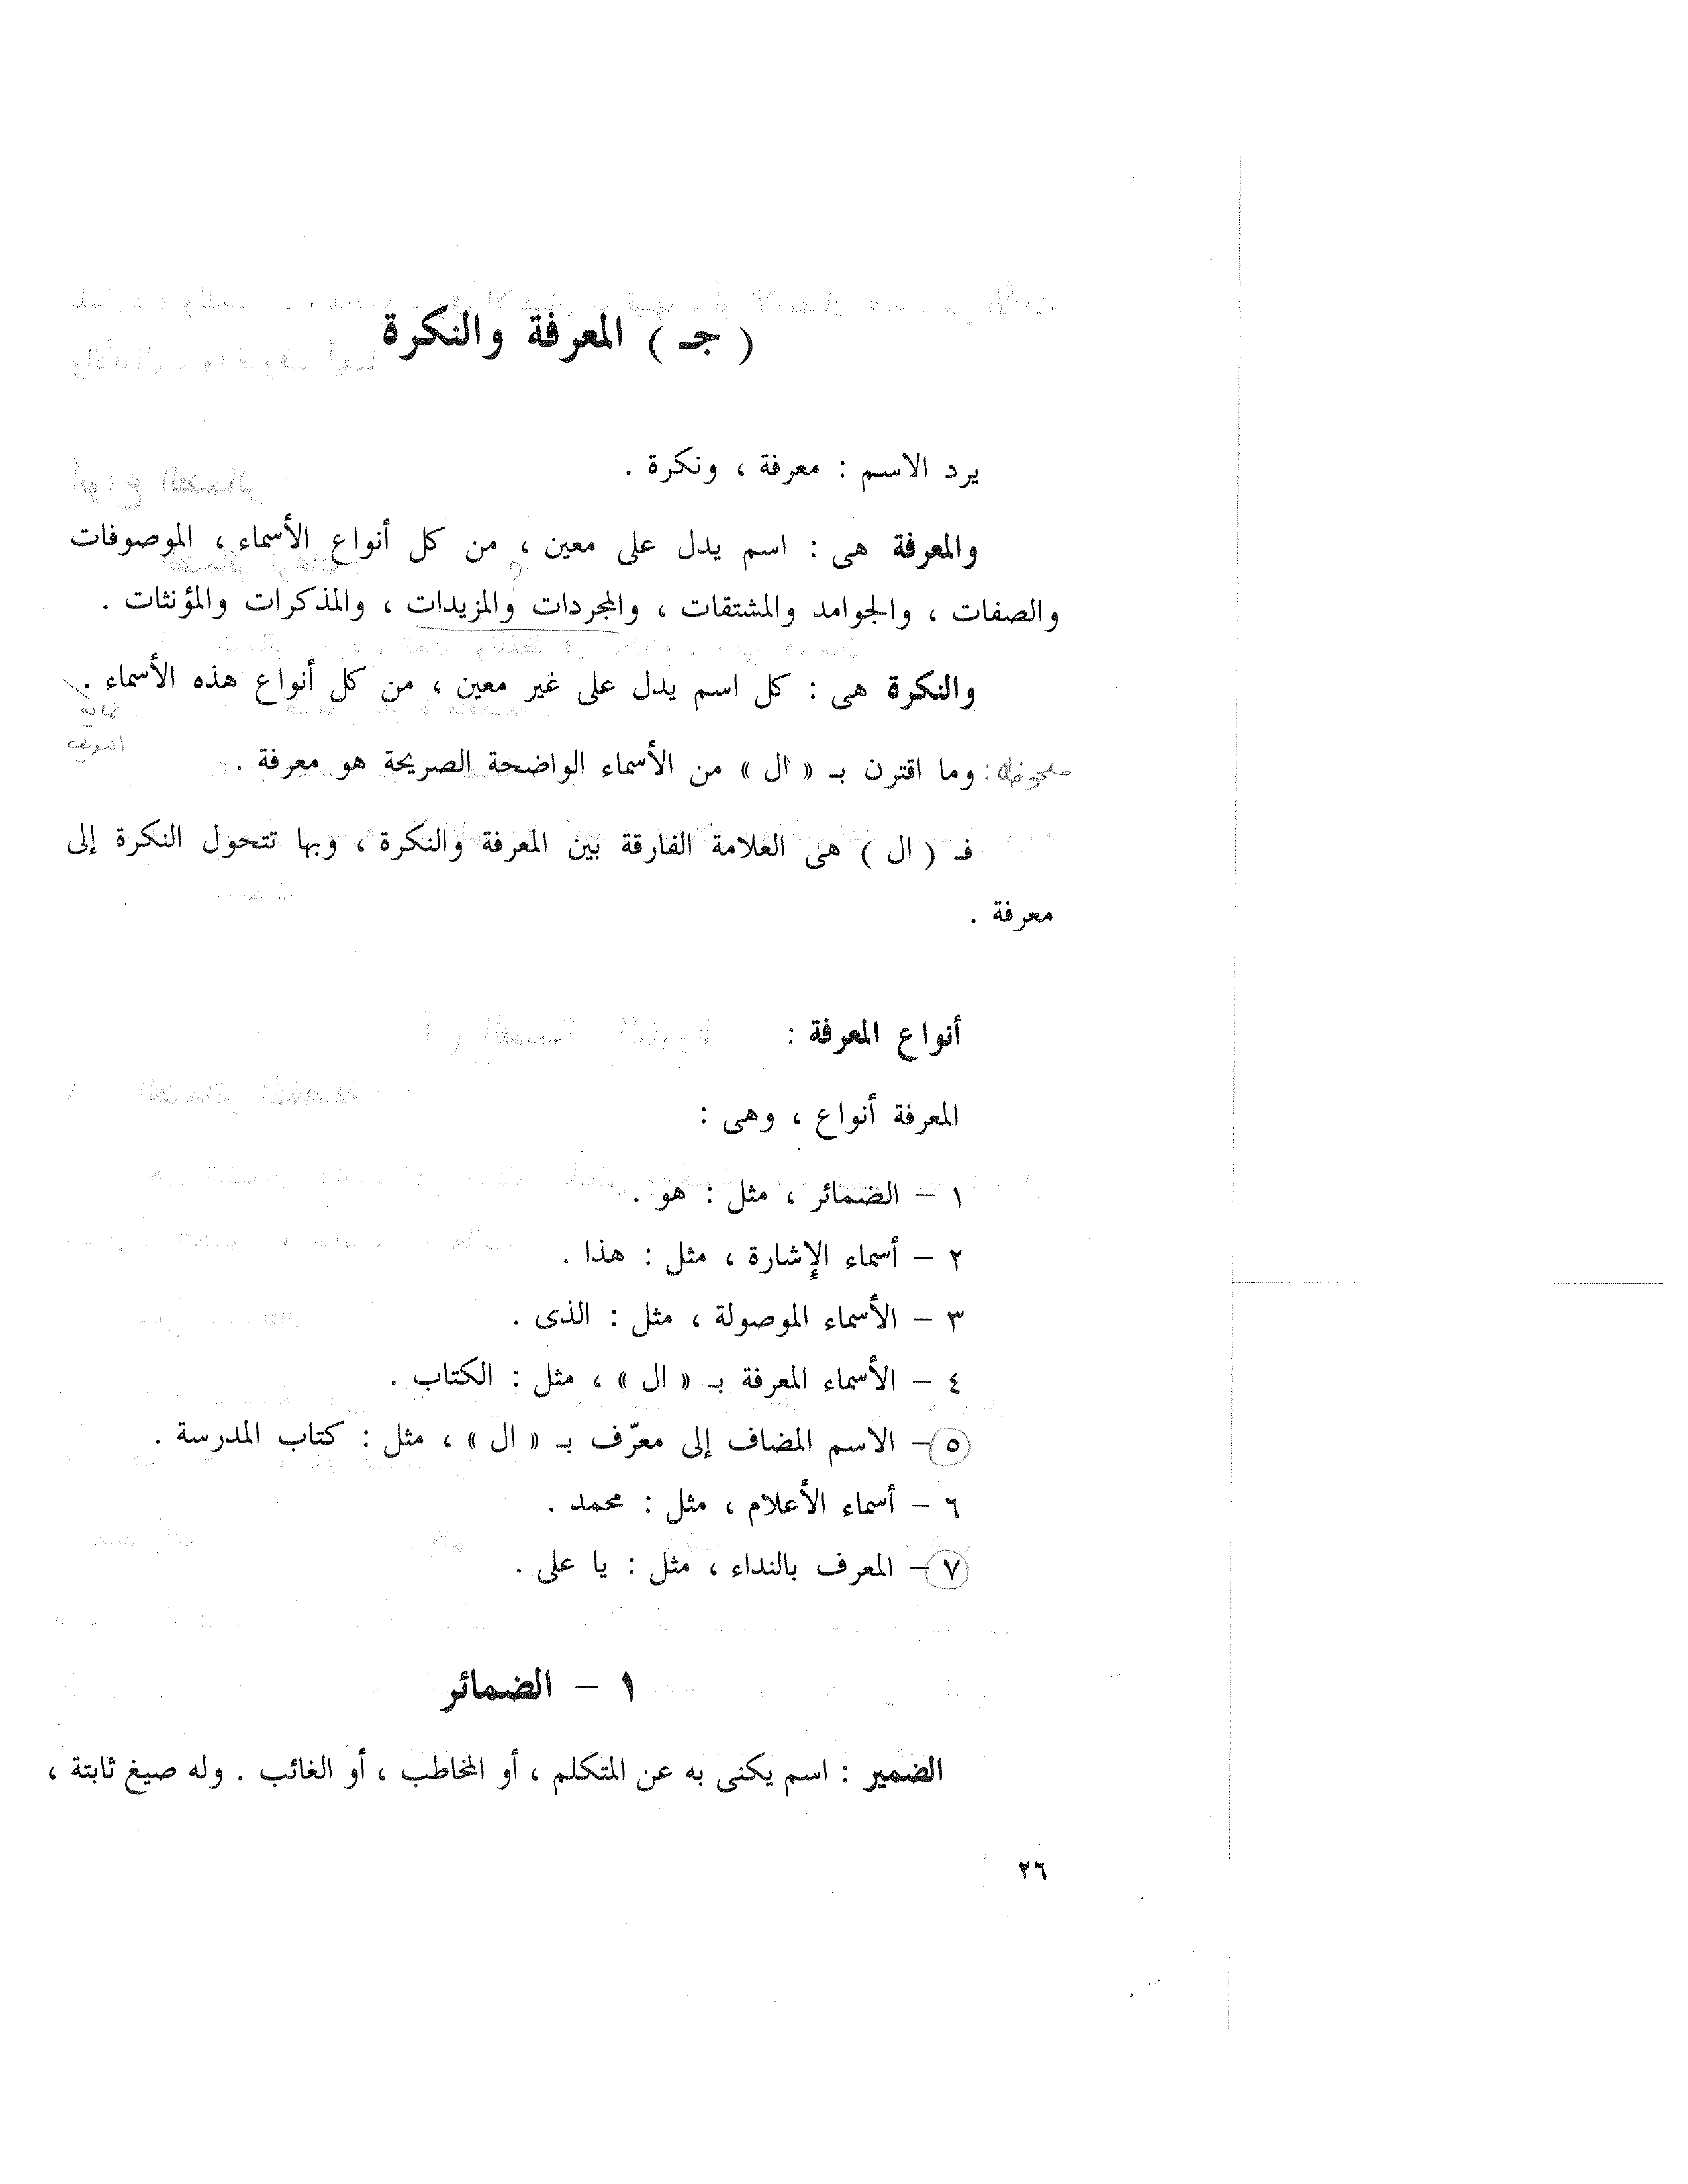 ( جـ ) المعرفة والنكرة
يرد الاسم : معرفة ، ونكرة .
والمعرفة هى : اسم يدل على معين ، من كل أنواع الأسماء ، الموصوفات
والصفات ، والجوامد والمشتقات ، والمجردات والمزيدات ، والمذكرات والمؤنثات .
والنكرة هى : كل اسم يدل على غير معين ، من كل أنواع هذه الأسماء .
التعريف
ملحوظة : وما اقترن بـ « ال » من الأسماء الواضحة الصريحة هو معرفة .
فـ ( ال ) هى العلامة الفارقة بين المعرفة والنكرة ، وبها تتحول النكرة إلى
معرفة .
أنواع المعرفة :
المعرفة أنواع ، وهى :
١ – الضمائر ، مثل : هو .
٢ – أسماء الإشارة ، مثل : هذا .
٣ – الأسماء الموصولة ، مثل : الذى .
٤ – الأسماء المعرفة بـ « ال » ، مثل : الكتاب .
٥ – الاسم المضاف إلى معرّف بـ « ال » ، مثل : كتاب المدرسة .
٦ – أسماء الأعلام ، مثل : محمد .
٧ – المعرف بالنداء ، مثل : يا على .
١ – الضمائر
الضمير : اسم يكنى به عن المتكلم ، أو المخاطب ، أو الغائب . وله صيغ ثابتة ،
٢٦